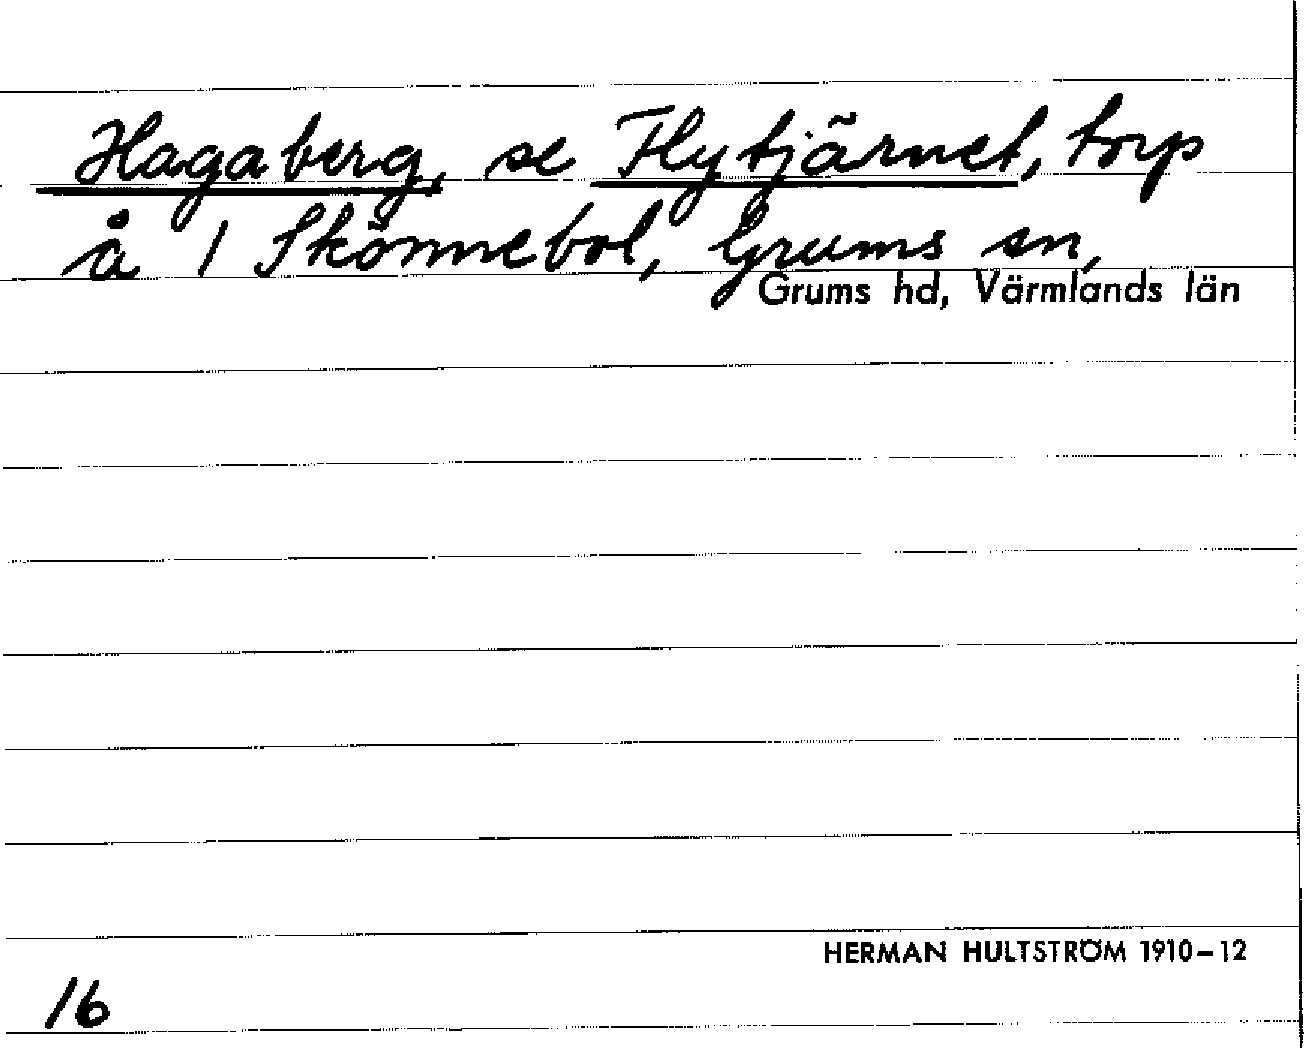 Hagaberg, se Flytjärnet, torp
å 1 Skönnebol, Grums sn,
Grums hd, Värmlands län
HERMAN HULTSTRÖM 1910-12
16